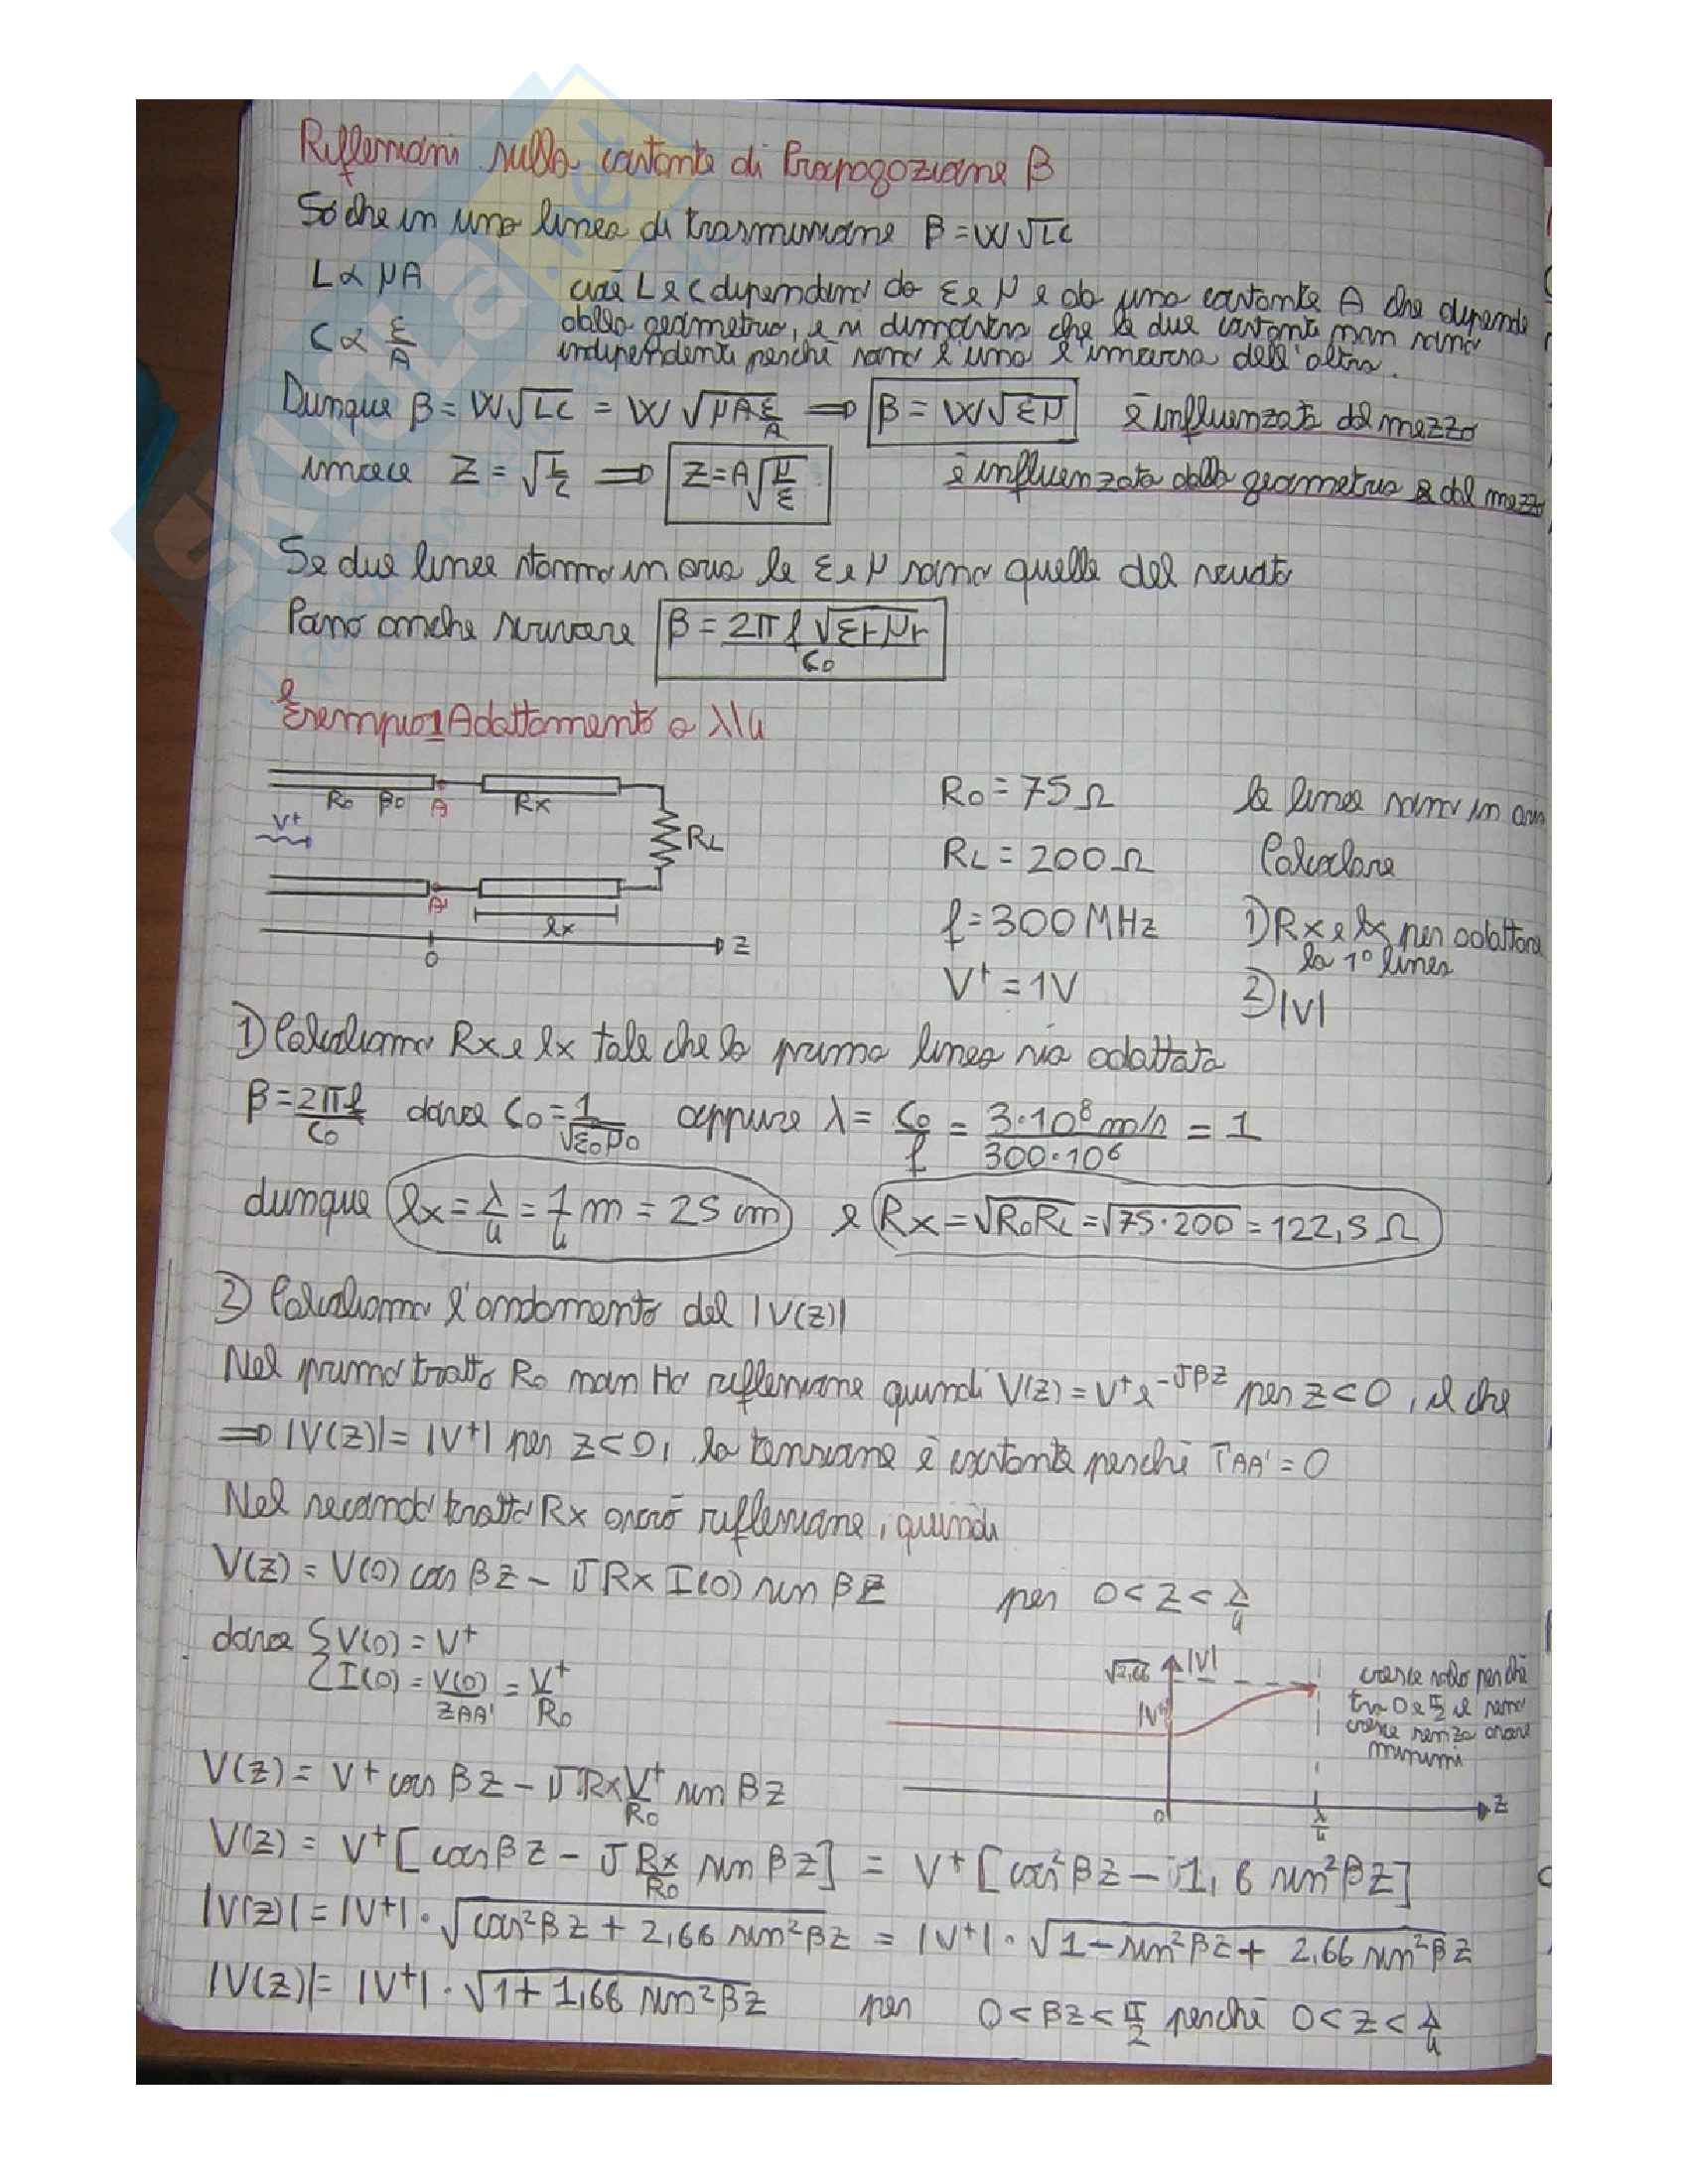 Riflessioni sulla costante di Propagazione β
So che in una linea di trasmissione β = W√LC
L ∝ μA
C ∝ ε/A
cioè L e C dipendono da ε e μ e da una costante A che dipende
dalla geometria, e si dimostra che le due costanti non sono
indipendenti perché sono l'una l'inversa dell'altra.
Dunque β = W√LC = W√μA ε/A ⇒ β = W√εμ è influenzata dal mezzo
invece Z = √L/C ⇒ Z = A√μ/ε è influenzata dalla geometria e dal mezzo
Se due linee stanno in aria le ε e μ sono quelle del vuoto
Posso anche scrivere β = 2πf√εrμr / C0
Esempio 1 Adattamento a λ/4
R0 β0 A Rx
V+
RL
A'
lx
0 z
R0 = 75Ω le linee sono in aria
RL = 200Ω Calcolare
f = 300 MHz 1) Rx e lx per adattare
la 1° linea
V+ = 1V 2) |V|
1) Calcoliamo Rx e lx tale che la prima linea sia adattata
β = 2πf/C0 dove C0 = 1/√ε0μ0 oppure λ = C0/f = 3·10⁸ m/s / 300·10⁶ = 1
dunque lx = λ/4 = 1/4 m = 25 cm e Rx = √R0RL = √75·200 = 122,5 Ω
2) Calcoliamo l'andamento del |V(z)|
Nel primo tratto R0 non Ho riflessione quindi V(z) = V+ e^-Jβz per z<0, il che
⇒ |V(z)| = |V+| per z<0, la tensione è costante perché ΓAA' = 0
Nel secondo tratto Rx avrò riflessione, quindi
V(z) = V(0) cos βz - J Rx I(0) sen βz per 0<z<λ/4
dove { V(0) = V+
{ I(0) = V(0)/ZAA' = V+/R0
√2,66 |V|
|V+|
0 λ/4 z
cresce solo perché
tra 0 e π/2 il seno
cresce senza avere
minimi
V(z) = V+ cos βz - J Rx V+/R0 sen βz
V(z) = V+ [cos βz - J Rx/R0 sen βz] = V+ [cos² βz - J1,6 sen² βz]
|V(z)| = |V+| · √cos² βz + 2,66 sen² βz = |V+| · √1 - sen² βz + 2,66 sen² βz
|V(z)| = |V+| · √1 + 1,66 sen² βz per 0<βz<π/2 perché 0<z<λ/4